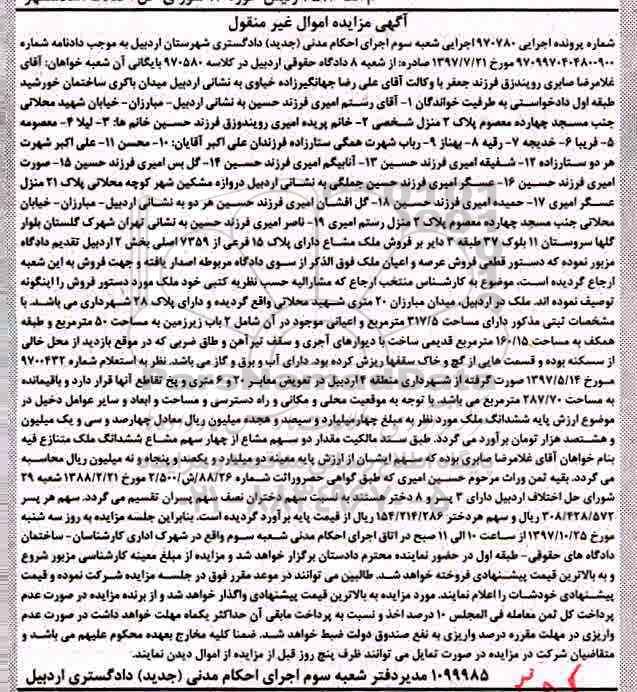 آگهی مزایده اموال غیر منقول
شماره پرونده اجرایی ۹۷۰۷۸۰اجرایی شعبه سوم اجرای احکام مدنی (جدید) دادگستری شهرستان اردبیل به موجب دادنامه شماره
۹۷۰۹۹۷۰۴۰۴۸۰۰۹۰۰ مورخ ۱۳۹۷/۷/۲۱ صادره: از شعبه ۸ دادگاه حقوقی اردبیل در کلاسه ۹۷۰۵۸۰ بایگانی آن شعبه خواهان: آقای
غلامرضا صابری رویندزق فرزند جعفر با وکالت آقای علی رضا جهانگیرزاده خیاوی به نشانی اردبیل میدان باکری ساختمان خورشید
طبقه اول دادخواستی به طرفیت خواندگان ۱- آقای رستم امیری فرزند حسین به نشانی اردبیل- مبارزان- خیابان شهید محلاتی
جنب مسجد چهارده معصوم پلاک ۲ منزل شخصی ۲- خانم پریده امیری رویندوزق فرزند حسین خانم ها: ۳- لیلا ۴- معصومه
۵- فریبا ۶- خدیجه ۷- رقیه ۸- بهناز ۹- رباب شهرت همگی ستارزاده فرزندان علی اکبر آقایان: ۱۰- محسن ۱۱- علی اکبر شهرت
هر دو ستارزاده ۱۲- شفیقه امیری فرزند حسین ۱۳- آنابیگم امیری فرزند حسین ۱۴- گل بس امیری فرزند حسین ۱۵- صورت
امیری فرزند حسین ۱۶- عسگر امیری فرزند حسین جملگی به نشانی اردبیل دروازه مشکین شهر کوچه محلاتی پلاک ۲۱ منزل
عسگر امیری ۱۷- حمیده امیری فرزند حسین ۱۸- گل افشان امیری فرزند حسین هر دو به نشانی اردبیل- مبارزان- خیابان
محلاتی جنب مسجد چهارده معصوم پلاک ۲ منزل رستم امیری ۱۹- ناصر امیری فرزند حسین به نشانی تهران شهرک گلستان بلوار
گلها سروستان ۱۱ بلوک ۳۷ طبقه ۳ دایر بر فروش ملک مشاع دارای پلاک ۱۵ فرعی از ۷۳۵۹ اصلی بخش ۲ اردبیل تقدیم دادگاه
مزبور نموده که دستور قطعی فروش عرصه و اعیان ملک فوق الذکر از سوی دادگاه مربوطه اصدار یافته و جهت فروش به این شعبه
ارجاع گردیده است، موضوع به کارشناسی منتخب ارجاع که مشارالیه حسب نظریه کتبی خود ملک مورد دستور فروش را اینگونه
توصیف نموده اند. ملک در اردبیل، میدان مبارزان ۲۰ متری شهید محلاتی واقع گردیده و دارای پلاک ۲۸ شهرداری می باشد. با
مشخصات ثبتی مذکور دارای مساحت ۳۱۷/۵ مترمربع و اعیانی موجود در آن شامل ۲ باب زیرزمین به مساحت ۵۰ مترمربع و طبقه
همکف به مساحت ۱۶۰/۱۵ مترمربع قدیمی ساخت با دیوارهای آجری و سقف تیرآهن و طاق ضربی که در موقع بازدید از محل خالی
از سسکنه بوده و قسمت هایی از گچ و خاک سقفها ریزش کرده بود. دارای آب و برق و گاز می باشد. نظر به استعلام شماره ۹۷۰۰۴۳۲
مورخ ۱۳۹۷/۵/۱۴ صورت گرفته از شهرداری منطقه ۴ اردبیل در تعویض معابر ۲۰ و ۶ متری و پخ تقاطع آنها قرار دارد و باقیمانده
به مساحت ۲۸۷/۷۰ مترمربع می باشد. با توجه به موقعیت محلی و مکانی و راه دسترسی و مساحت و ابعاد و سایر عوامل دخیل در
موضوع ارزش پایه ششدانگ ملک مورد نظر به مبلغ چهارمیلیارد و سیصد و هجده میلیون ریال معادل چهارصد و سی و یک میلیون
و هشتصد هزار تومان برآورد می گردد. طبق سند مالکیت مقدار دو سهم مشاع از چهار سهم مشاع ششدانگ ملک متنازع فیه
بنام خواهان آقای غلامرضا صابری بوده که سهم ایشان از ارزش پایه معینه دو میلیارد و یکصد و پنجاه و نه میلیون ریال محاسبه
می گردد. بقیه ثمن وراث مرحوم حسین امیری که طبق گواهی حصروراثت شماره ۸۸/۲۶/ش/۲/۵۰۰ مورخ ۱۳۸۸/۲/۲۱ شعبه ۲۹
شورای حل اختلاف اردبیل دارای ۳ پسر و ۸ دختر هستند به نسبت سهم دختران نصف سهم پسران تقسیم می گردد. سهم هر پسر
۳۰۸/۴۲۸/۵۷۲ ریال و سهم هردختر ۱۵۴/۲۱۴/۲۸۶ ریال از قیمت پایه برآورد گردیده است. بنابراین جلسه مزایده به روز سه شنبه
مورخ ۱۳۹۷/۱۰/۲۵ از ساعت ۱۰ الی ۱۱ صبح در اتاق اجرای احکام مدنی شعبه سوم واقع در شهرک اداری کارشناسان- ساختمان
دادگاه های حقوقی- طبقه اول در حضور نماینده محترم دادستان برگزار خواهد شد و مزایده از مبلغ معینه کارشناسی مزبور شروع
و به بالاترین قیمت پیشنهادی فروخته خواهد شد. طالبین می توانند در موعد مقرر فوق در جلسه مزایده شرکت نموده و قیمت
پیشنهادی خودشات را اعلام نمایند. مورد مزایده به بالاترین قیمت پیشنهادی واگذار خواهد شد و از برنده مزایده در صورت عدم
پرداخت کل ثمن معامله فی المجلس ۱۰ درصد اخذ و نسبت به پرداخت مابقی آن حداکثر یکماه مهلت خواهد داشت در صورت عدم
واریزی در مهلت مقرره درصد واریزی به نفع صندوق دولت ضبط خواهد شد. ضمنا کلیه مخارج بعهده محکوم علیهم می باشد و
متقاضیان شرکت در مزایده در صورت تمایل می توانند ظرف پنج روز قبل از مزایده از اموال دیدن نمایند.
۱۰۹۹۹۸۵ مدیردفتر شعبه سوم اجرای احکام مدنی (جدید) دادگستری اردبیل